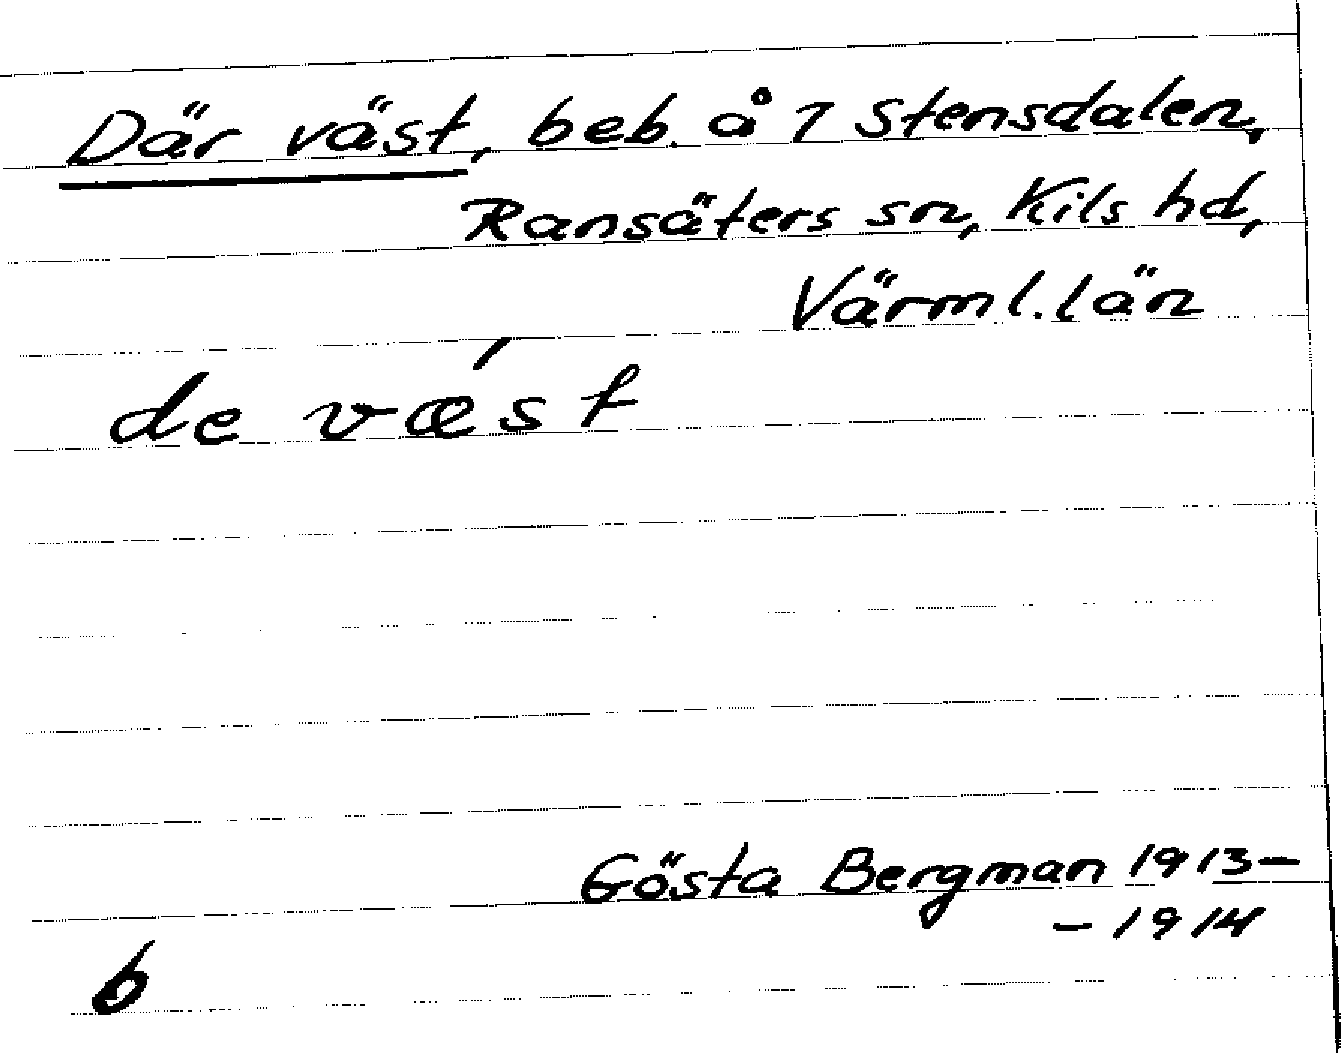 Där väst, beb. å 1 Stensdalen,
Ransäters sn, Kils hd,
Värml. län
de vǽst
Gösta Bergman 1913-
-1914
b